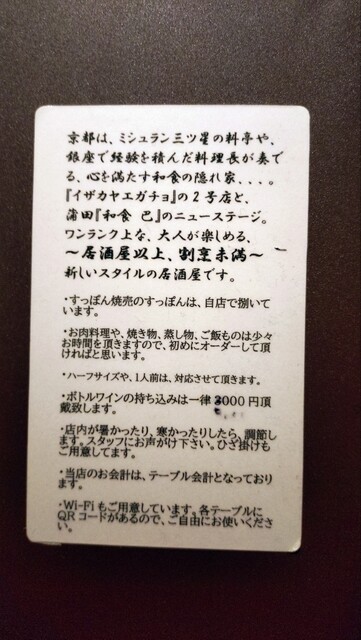 京都は、ミシュラン三ツ星の料亭や、
銀座で経験を積んだ料理長が奏で
る、心を満たす和食の隠れ家、、、。
『イザカヤエガチョ』の2号店と、
蒲田『和食 己』のニューステージ。
ワンランク上な、大人が楽しめる、
～居酒屋以上、割烹未満～
新しいスタイルの居酒屋です。
・すっぽん焼売のすっぽんは、自店で捌いて
います。
・お肉料理や、焼き物、蒸し物、ご飯ものは少々
お時間を頂きますので、初めにオーダーして頂
ければと思います。
・ハーフサイズや、1人前は、対応させて頂きます。
・ボトルワインの持ち込みは一律 3000円頂
戴致します。
・店内が暑かったり、寒かったりしたら、調節し
ます。スタッフにお声がけ下さい。ひざ掛けも
ご用意してます。
・当店のお会計は、テーブル会計となっており
ます。
・Wi-Fiもご用意しています。各テーブルに
QRコードがあるので、ご自由にお使いくださ
い。